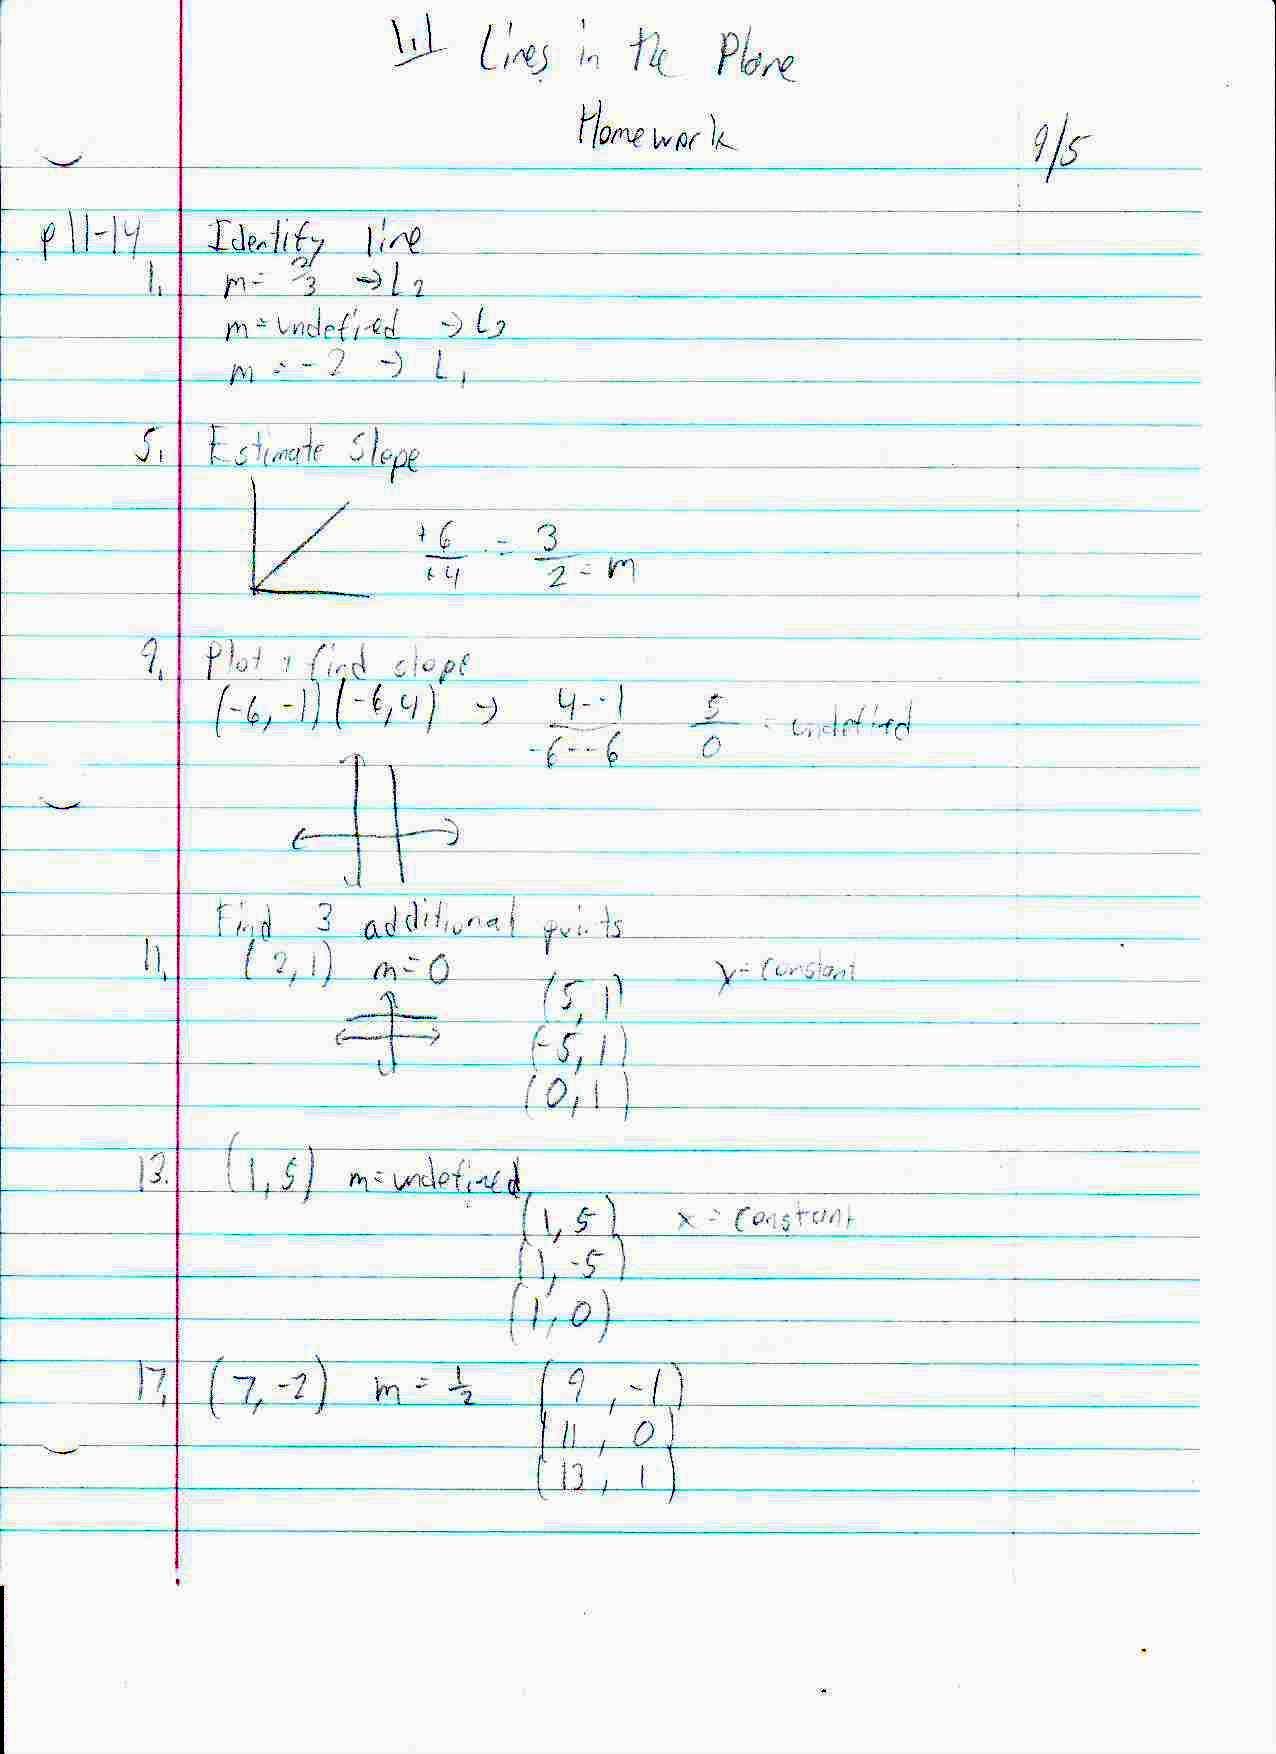 1.1 Lines in the Plane
Homework
9/5
p 11-14 Identify line
1. m = 2/3 → L2
m = undefined → L3
m = -2 → L1
5. Estimate slope
+6/+4 = 3/2 = m
9. Plot & find slope
(-6, -1) (-6, 4) → 4--1/-6--6 5/0 = undefined
Find 3 additional points
11. (2, 1) m = 0 y = constant
(5, 1)
(-5, 1)
(0, 1)
13. (1, 5) m = undefined
(1, 5) x = constant
(1, -5)
(1, 0)
17. (7, -2) m = 1/2 (9, -1)
(11, 0)
(13, 1)